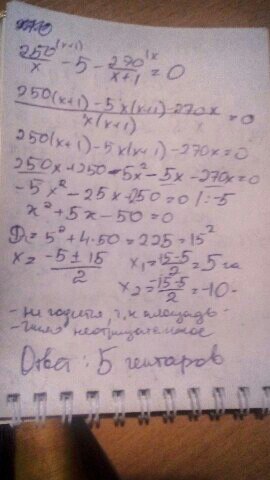 250^(x+1)/x - 5 - 270^(x/x+1 = 0
250(x+1) - 5x(x+1) - 270x / x(x+1) = 0
250(x+1) - 5x(x+1) - 270x = 0
250x + 250 - 5x² - 5x - 270x = 0
-5x² - 25x - 250 = 0 /: -5
x² + 5x - 50 = 0
D = 5² + 4·50 = 225 = 15²
x = -5 ± 15 / 2 x₁ = 15-5 / 2 = 5 га
x₂ = -15-5 / 2 = -10 -
- не годится, т.к площадь -
- число неотрицательное
Ответ: 5 гектаров